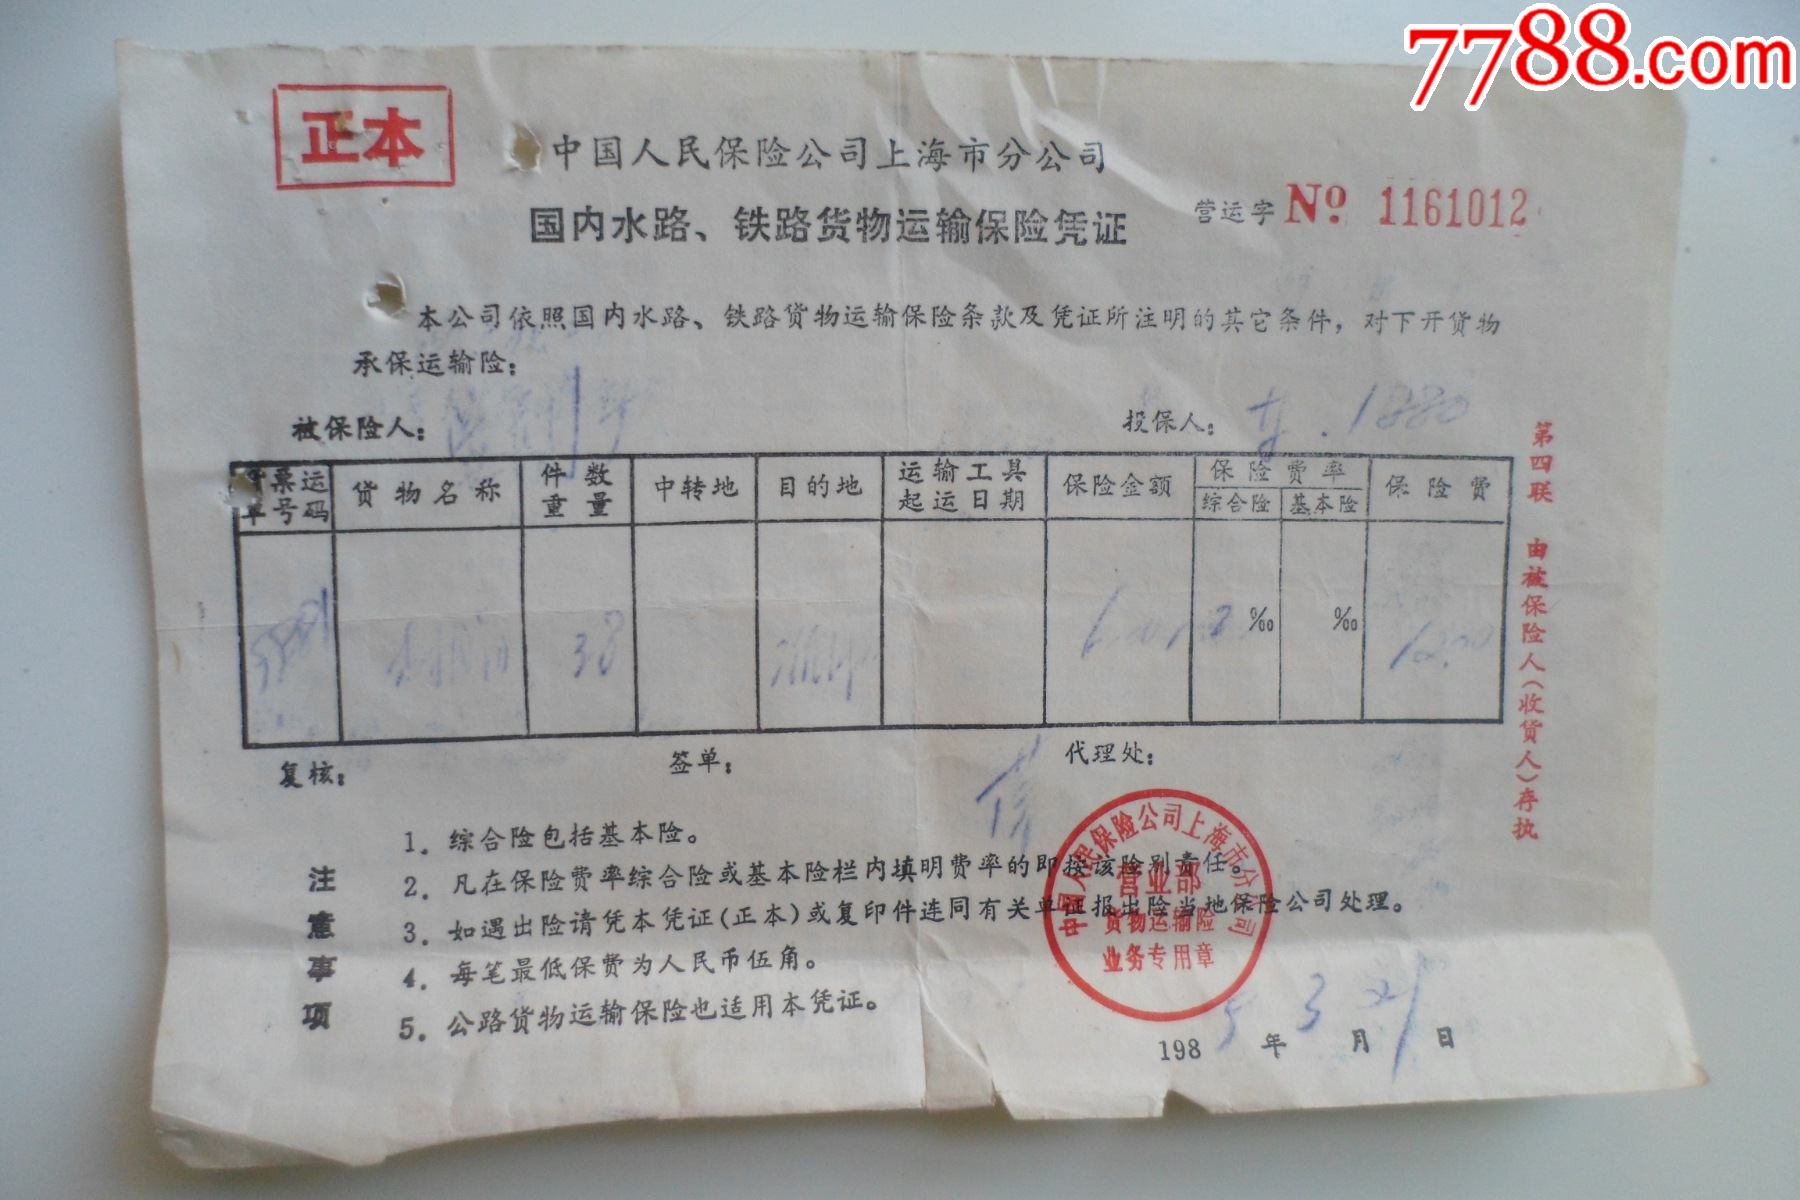 7788.com
正本
中国人民保险公司上海市分公司
国内水路、铁路货物运输保险凭证
营运字 № 1161012
本公司依照国内水路、铁路货物运输保险条款及凭证所注明的其它条件，对下开货物
承保运输险：
被保险人：
投保人：
票运
单号码
货物名称
件数
重量
中转地
目的地
运输工具
起运日期
保险金额
保险费率
综合险
基本险
保险费
38
‰
‰
复核：
签单：
代理处：
注意事项
1．综合险包括基本险。
2．凡在保险费率综合险或基本险栏内填明费率的即按该险别责任。
3．如遇出险请凭本凭证(正本)或复印件连同有关单证报出险当地保险公司处理。
4．每笔最低保费为人民币伍角。
5．公路货物运输保险也适用本凭证。
中国人民保险公司上海市分公司
营业部
货物运输险
业务专用章
1985年3月21日
第四联 由被保险人(收货人)存执